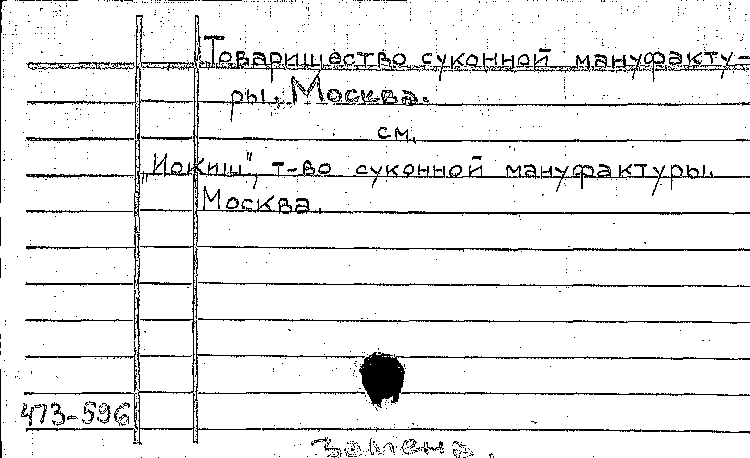 Товарищество суконной мануфакту-
ры, Москва.
см.
„Иокиш", т-во суконной мануфактуры.
Москва.
473-596
замена.